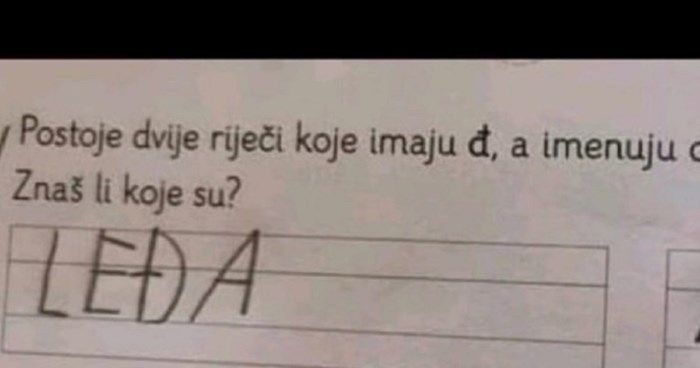 Postoje dvije riječi koje imaju đ, a imenuju
Znaš li koje su?
LEĐA